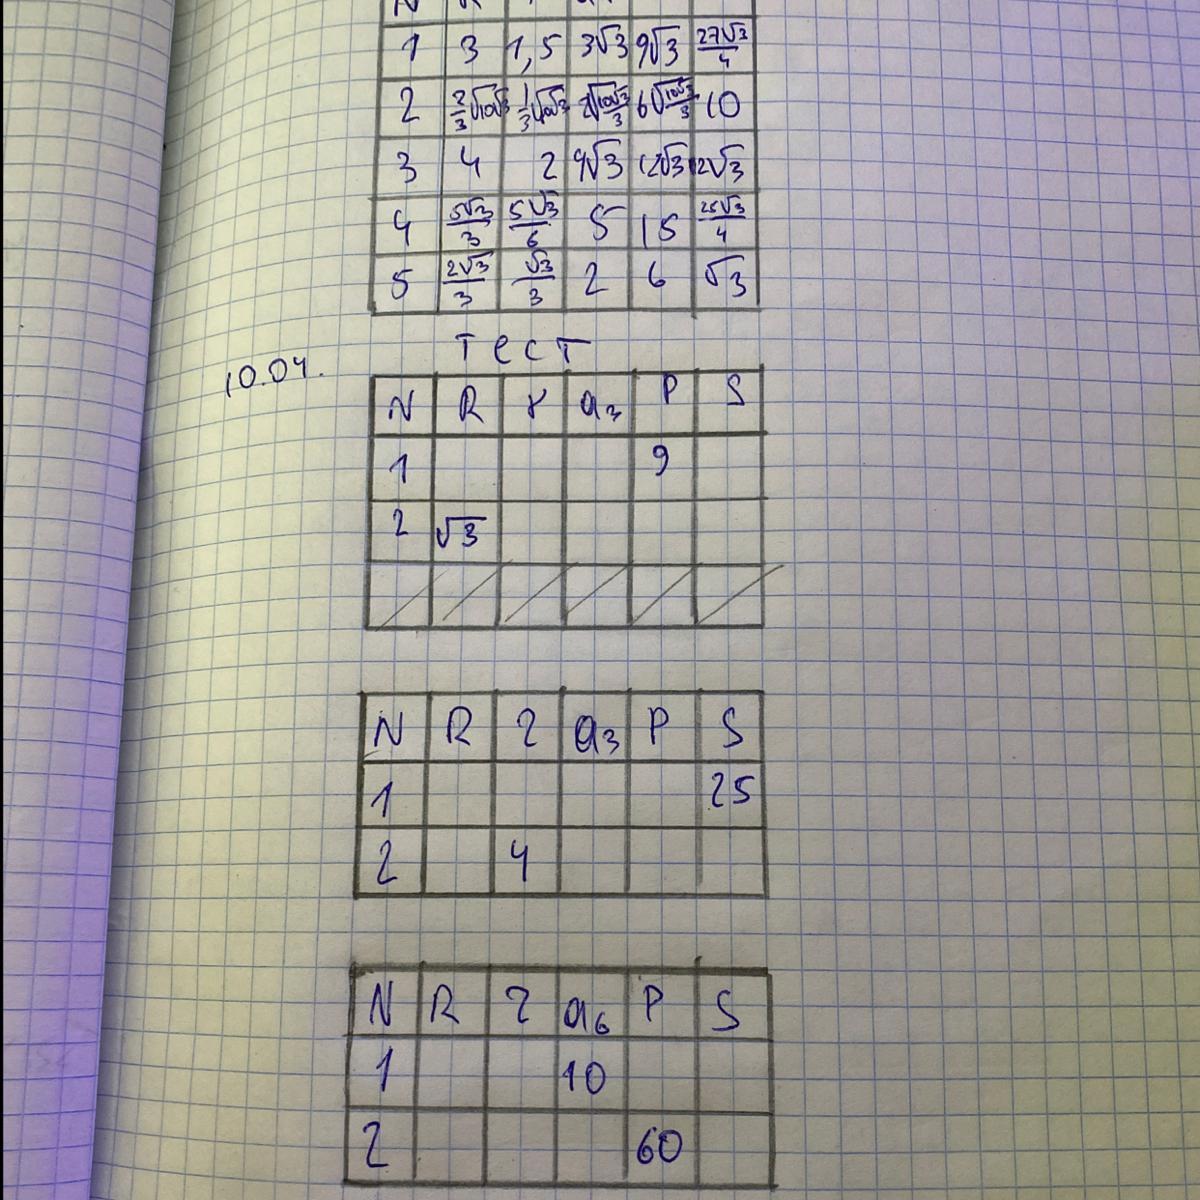 1 3 1,5 3√3 9√3 27√3/4
2 2/3√10√3 6√10√3/3 10
3 4 2 4√3 12√3 12√3
4 5√3/3 5√3/6 5 15 25√3/4
5 2√3/3 √3/3 2 6 √3
10.04. Тест
N R r a₃ P S
1 9
2 √3
N R r a₃ P S
1 25
2 4
N R r a₆ P S
1 10
2 60